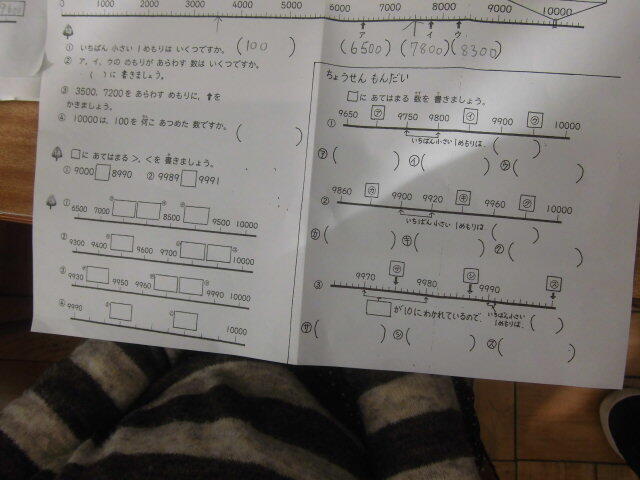 0 1000 2000 3000 4000 5000 6000 7000 8000 9000 10000
ア イ ウ
(6500) (7800) (8300)
① いちばん 小さい 1めもりは いくつですか。 (100)
② ア、イ、ウの めもりが あらわす 数は いくつですか。
( )に 書きましょう。
③ 3500、7200を あらわす めもりに、↑を
かきましょう。
④ 10000は、100を 何こ あつめた 数ですか。 ( )
□に あてはまる >、<を 書きましょう。
① 9000 □ 8990 ② 9989 □ 9991
① 6500 7000 8500 9500 10000
② 9300 9400 9600 9700 10000
③ 9930 9950 9960 9990 10000
④ 9990 10000
ちょうせん もんだい
□に あてはまる 数を 書きましょう。
① 9650 ㋐ 9750 9800 ㋑ 9900 ㋒ 10000
いちばん小さい 1めもりは、( )
㋐( ) ㋑( ) ㋒( )
② 9860 ㋕ 9900 9920 ㋖ 9960 ㋗ 10000
いちばん小さい 1めもりは、( )
㋕( ) ㋖( ) ㋗( )
③ 9970 ㋚ 9980 ㋛ 9990 ㋜
□が 10に わかれているので、 いちばん小さい
1めもりは、( )
㋚( ) ㋛( ) ㋜( )